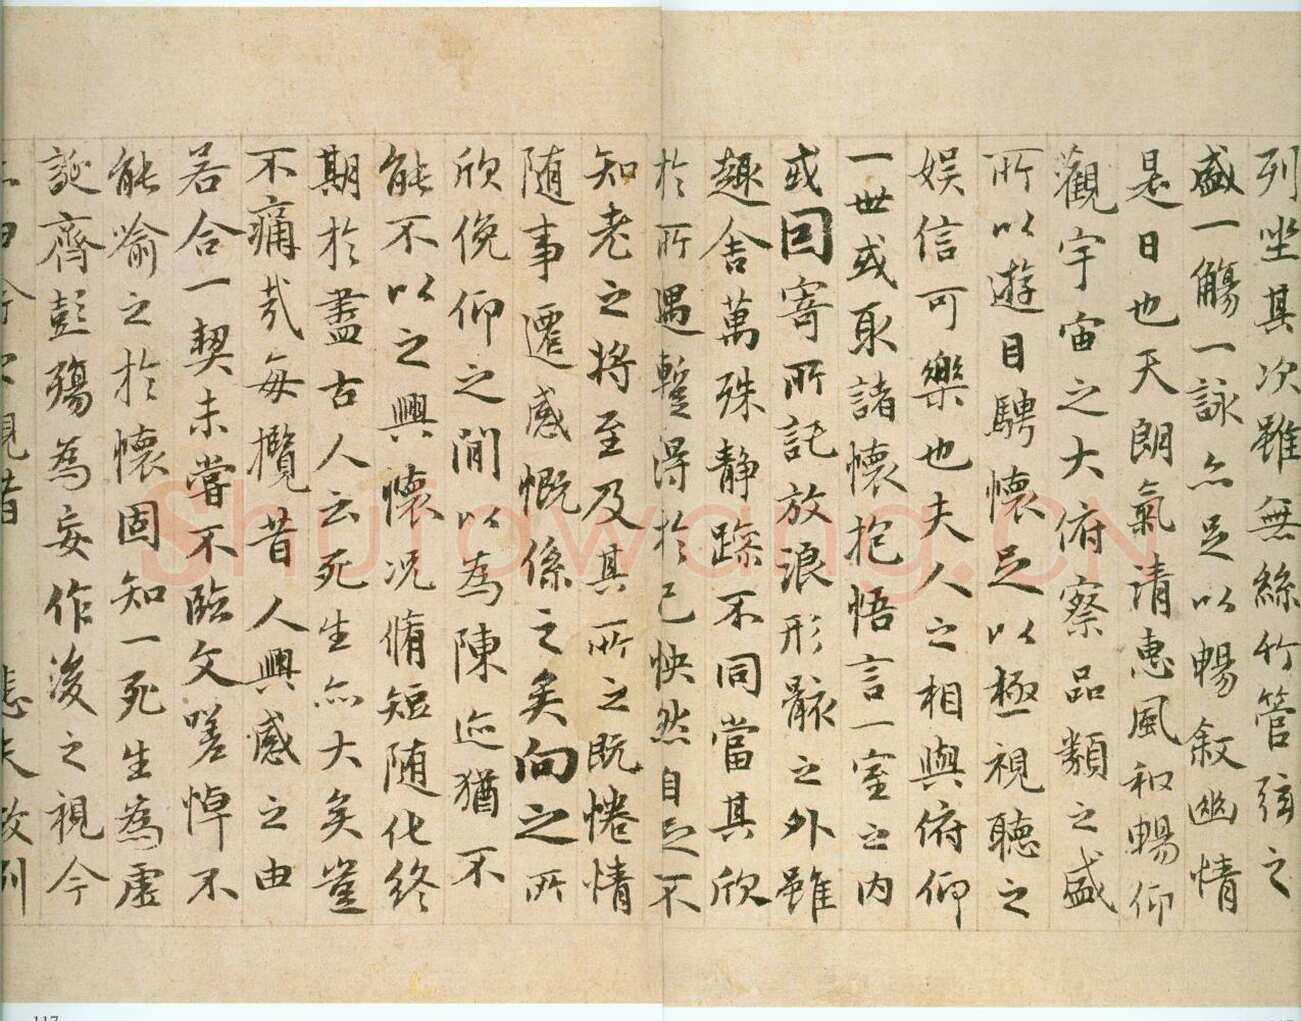 列坐其次雖無絲竹管弦之
盛一觴一詠亦足以暢敘幽情
是日也天朗氣清惠風和暢仰
觀宇宙之大俯察品類之盛
所以遊目騁懷足以極視聽之
娛信可樂也夫人之相與俯仰
一世或取諸懷抱悟言一室之內
或因寄所託放浪形骸之外雖
趣舍萬殊静躁不同當其欣
於所遇蹔得於己怏然自足不
知老之將至及其所之既惓情
随事遷感慨係之矣向之所
欣俛仰之閒以為陳迹猶不
能不以之興懷况脩短随化終
期於盡古人云死生亦大矣豈
不痛哉每攬昔人興感之由
若合一契未嘗不臨文嗟悼不
能喻之於懷固知一死生為虛
誕齊彭殤為妄作後之視今
由今之視昔 悲夫故列
Shufawang.CN
117